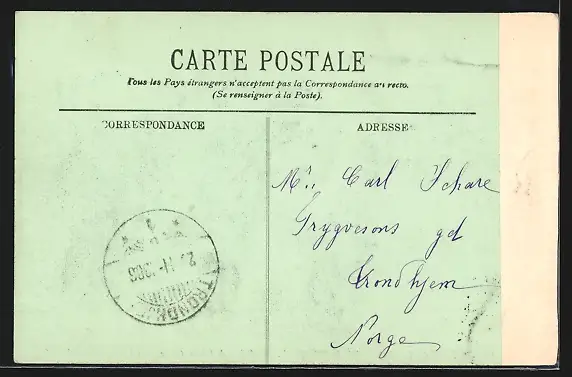 CARTE POSTALE
Tous les Pays étrangers n'acceptent pas la Correspondance au recto.
(Se renseigner à la Poste).
CORRESPONDANCE
ADRESSE
Mr. Carl Schare
Trygvesons gd
Trondhjem
Norge
TRONDHJEM